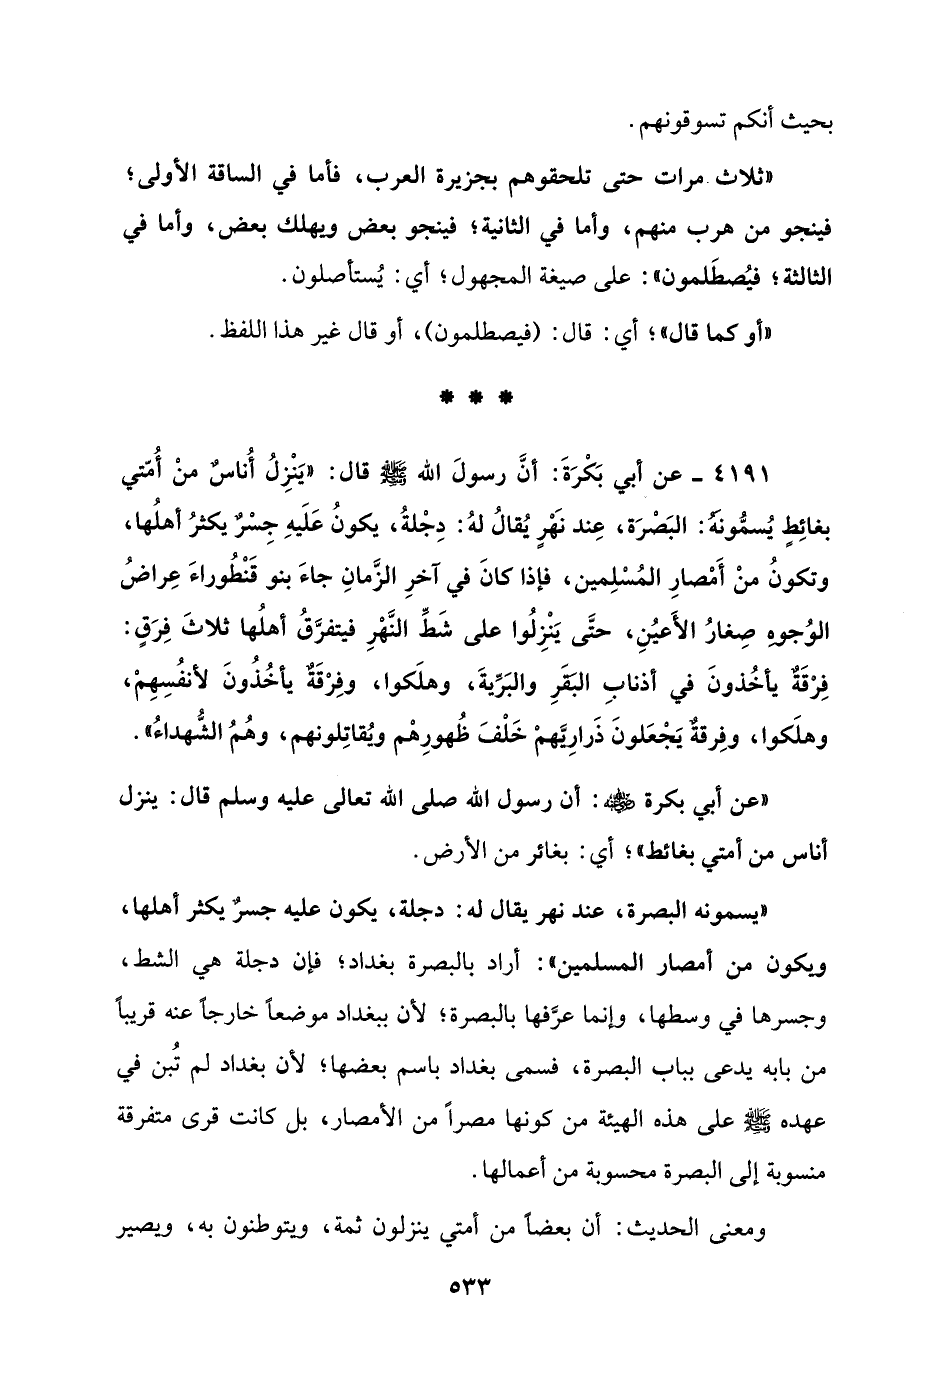 بحيث أنكم تسوقونهم.
«ثلاث مرات حتى تلحقوهم بجزيرة العرب، فأما في الساقة الأولى؛
فينجو من هرب منهم، وأما في الثانية؛ فينجو بعض ويهلك بعض، وأما في
الثالثة؛ فيُصطَلمون»: على صيغة المجهول؛ أي: يُستأصلون.
«أو كما قال»؛ أي: قال: (فيصطلمون)، أو قال غير هذا اللفظ.
* * *
٤١٩١ - عن أبي بَكْرَةَ: أنَّ رسولَ الله ﷺ قال: «يَنْزِلُ أُناسٌ منْ أُمَّتي
بغائِطٍ يُسمُّونهُ: البَصْرَة، عِند نَهْرٍ يُقالُ لهُ: دِجْلةُ، يكونُ عَلَيهِ جِسْرٌ يكثرُ أهلُها،
وتكونُ منْ أَمْصارِ المُسْلِمين، فإذا كانَ في آخرِ الزَّمانِ جاءَ بنو قَنْطُوراءَ عِراضُ
الوُجوهِ صِغارُ الأَعيُنِ، حتَّى يَنْزِلُوا على شَطِّ النَّهْرِ فيتفرَّقُ أهلُها ثلاثَ فِرَقٍ:
فِرْقَةٌ يأخُذونَ في أذنابِ البَقَرِ والبَرِّيةَ، وهلَكوا، وفِرْقَةٌ يأخُذُونَ لأنفُسِهِمْ،
وهلَكوا، وفِرقةٌ يَجْعَلونَ ذَرارِيَّهمْ خَلْفَ ظُهورِهْم ويُقاتِلونهم، وهُمُ الشُّهداءُ».
«عن أبي بكرة ﷺ: أن رسول الله صلى الله تعالى عليه وسلم قال: ينزل
أناس من أمتي بغائط»؛ أي: بغائر من الأرض.
«يسمونه البصرة، عند نهر يقال له: دجلة، يكون عليه جسرٌ يكثر أهلها،
ويكون من أمصار المسلمين»: أراد بالبصرة بغداد؛ فإن دجلة هي الشط،
وجسرها في وسطها، وإنما عرَّفها بالبصرة؛ لأن ببغداد موضعاً خارجاً عنه قريباً
من بابه يدعى بباب البصرة، فسمى بغداد باسم بعضها؛ لأن بغداد لم تُبن في
عهده ﷺ على هذه الهيئة من كونها مصراً من الأمصار، بل كانت قرى متفرقة
منسوبة إلى البصرة محسوبة من أعمالها.
ومعنى الحديث: أن بعضاً من أمتي ينزلون ثمة، ويتوطنون به، ويصير
٥٣٣